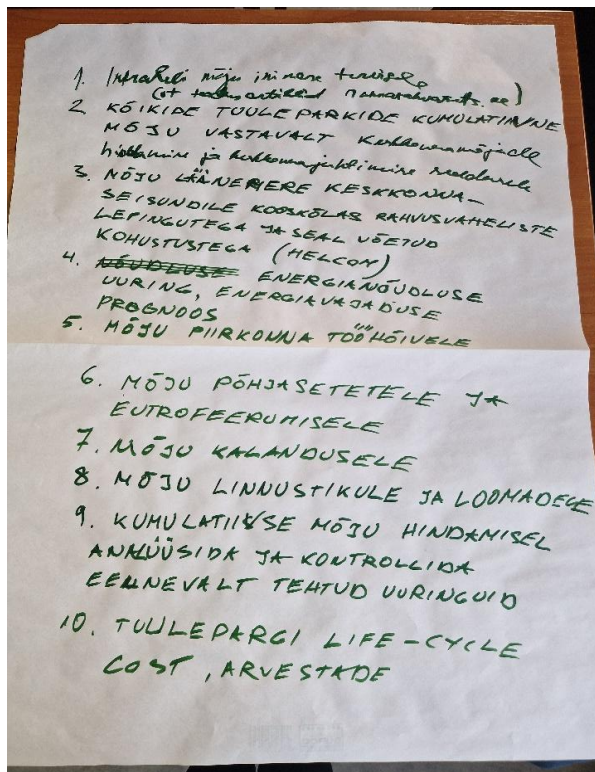 1. Infraheli mõju inimese tervisele
(vt teadusartikleid
2 KÕIKIDE TUULEPARKIDE KUMULATIIVNE
MÕJU VASTAVALT Keskkonnamõjude
hindamise ja keskkonnajuhtimise seadusele
3. MÕJU LÄÄNEMERE KESKKONNA-
SEISUNDILE KOOSKÕLAS RAHVUSVAHELISTE
LEPINGUTEGA JA SEAL VÕETUD
KOHUSTUSTEGA (HELCOM)
4. NÕUDLUSE ENERGIANÕUDLUSE
UURING, ENERGIAVAJADUSE
PROGNOOS
5. MÕJU PIIRKONNA TÖÖHÕIVELE
6. MÕJU PÕHJASETETELE JA
EUTROFEERUMISELE
7. MÕJU KALANDUSELE
8. MÕJU LINNUSTIKULE JA LOOMADELE
9. KUMULATIIVSE MÕJU HINDAMISEL
ANALÜÜSIDA JA KONTROLLIDA
EELNEVALT TEHTUD UURINGUID
10. TUULEPARGI LIFE-CYCLE
COST, ARVESTADE